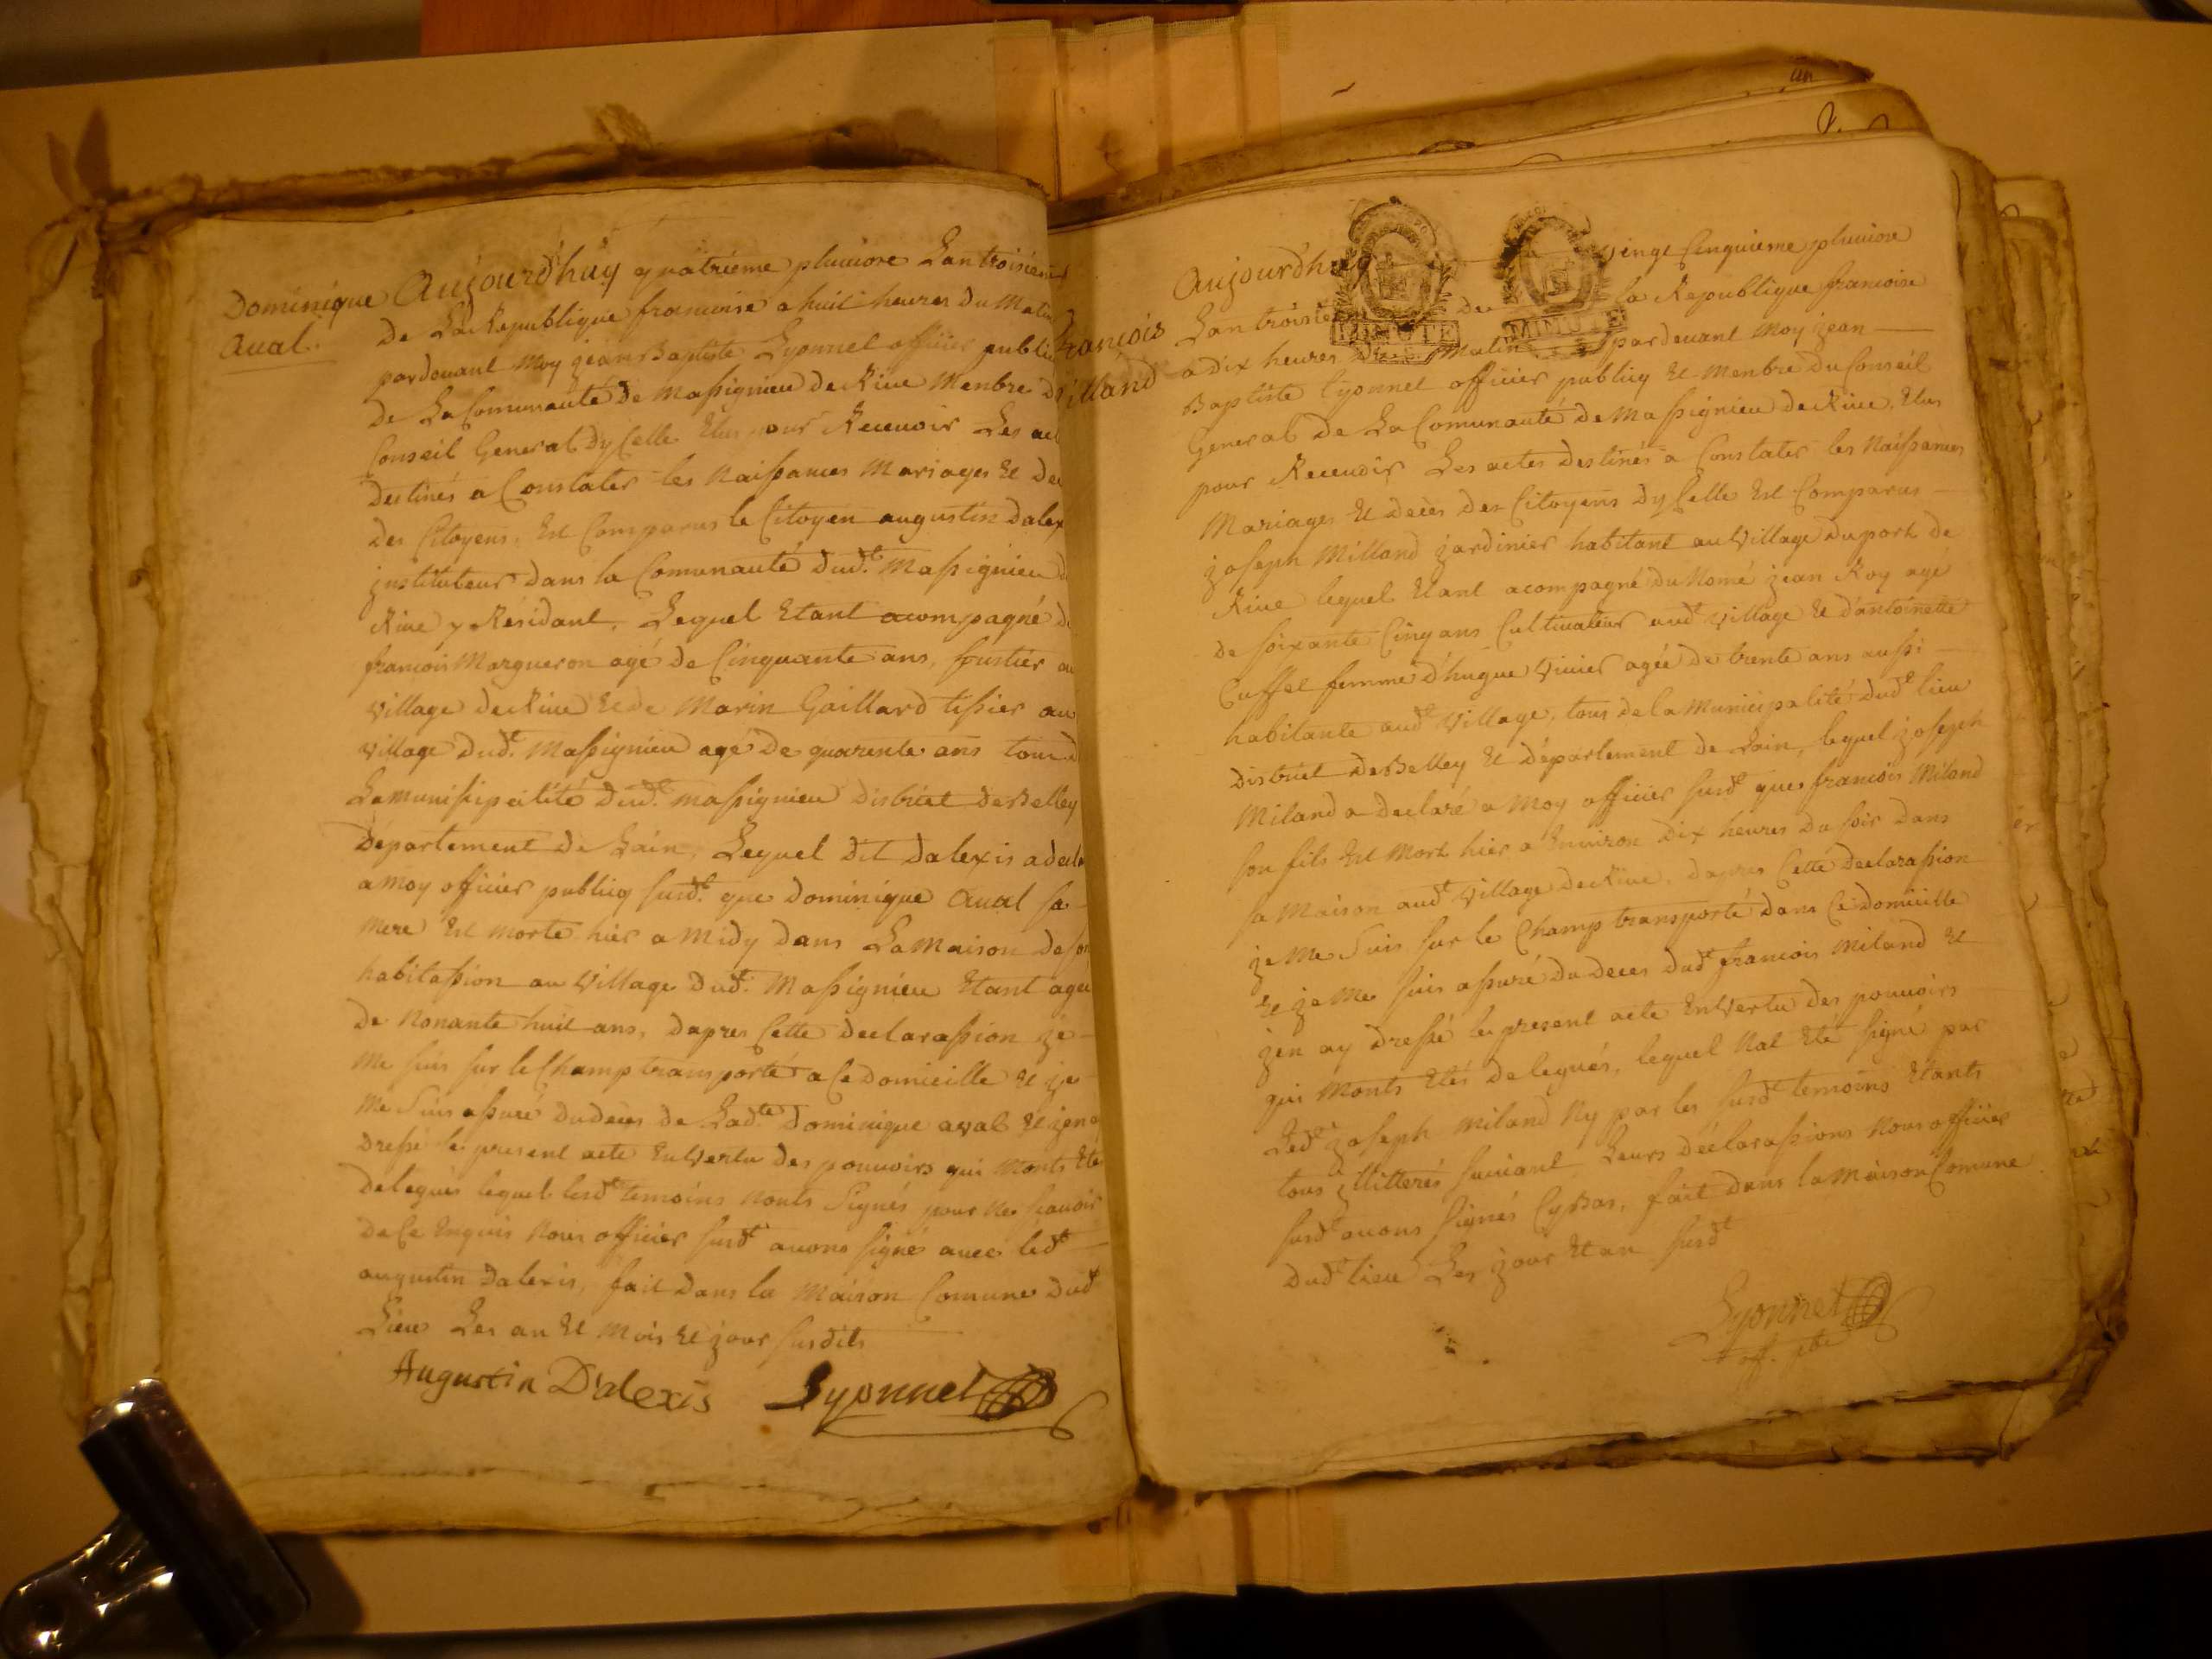 Dominique
Aual.
Aujourd'huy quatrieme pluuiose Lan troisieme
de La Republique francoise a huit heures du Matin
pardeuant Moy jean Baptiste Lyonnel officier public
de La Comunauté de Massignieu de Riue Menbre du
Conseil General dycelle Elus pour Receuoir Les act
destinés a Constater les Naissances Mariages Et de
des Citoyens, Est Comparus le Citoyen augustin dalex
jnstituteur dans la Comunauté dud.t Massignieu de
Riue y Résidant, Lequel Etant acompagné de
francois Margueron agé de Cinquante ans, fustier au
village de Riue Et de Marin Gaillard tissier au
village dud.t Massignieu agé de quarente ans tous d
La Munisipalité dud.t massignieu district de Belley
Département de Lain, Lequel dit dalexis a decla
a moy officier publicq susd.t que dominique Aual sa
mere Est morte hier a Midy dans La Maison de son
habitassion au village dud.t Massignieu Etant agée
de Nonante huit ans, dapres Cette declarassion je
me suis sur le Champ transporté a Ce domicille Et je
me suis assuré du deces de Lad.te dominique aval Et jen a
dressé le present acte En Vertu des pouuoirs qui Monts Eté
delegués lequel lesd.t temoins Nonts Signés pour Ne scauoir
de Ce Enquis Nous officier susd.t auons signé auec led.t
augustin dalexis, fait dans la Maison Comune dud.t
Lieu Les an Et Mois Et jour susdits
Augustin D'alexis Lyonnel
francois
Milland
Aujourd'huy vingt Cinquieme pluuiose
Lan troisieme de la Republique francoise
MINUTE MINUTE
a dix heures du Matin pardeuant Moy jean
Baptiste Lyonnel officier publicq Et Menbre du Conseil
General de La Comunauté de Massignieu de Riue, Elus
pour Receuoir Les actes destinés a Constater les Naissances
Mariages Et deces des Citoyens dycelle Est Comparus
joseph Milland jardinier habitant au Village du port de
Riue lequel Etant acompagné du Nomé jean Roy agé
de soixante Cinq ans Cultiuateur aud.t village Et d'antoinette
Cuffel femme d'hugue Viuier agée de trente ans aussi
habitante aud.t village, tous de la Municipalité dud.t lieu
district de Belley Et département de Lain, lequel joseph
Miland a declaré a Moy officier susd.t que francois Miland
son fils Est Mort hier a Enuiron dix heures du soir dans
sa Maison aud.t village de Riue, dapres Cette declarassion
je Me Suis sur le Champ transporté dans Ce domicille
Et je Me suis assuré du deces dud.t francois Miland Et
jen ay dressé le present acte En Vertu des pouuoirs
qui Monts Etés delegués, lequel Nat Eté signé par
Led.t joseph Miland Ny par les susd.t temoins Etants
tous jllitterés suiuant Leurs déclarassions Nous officier
susd.t auons signés Cy Bas, fait dans la Maison Comune
dud.t lieu Les jour Et an susd.t
Lyonnel
off. pbc